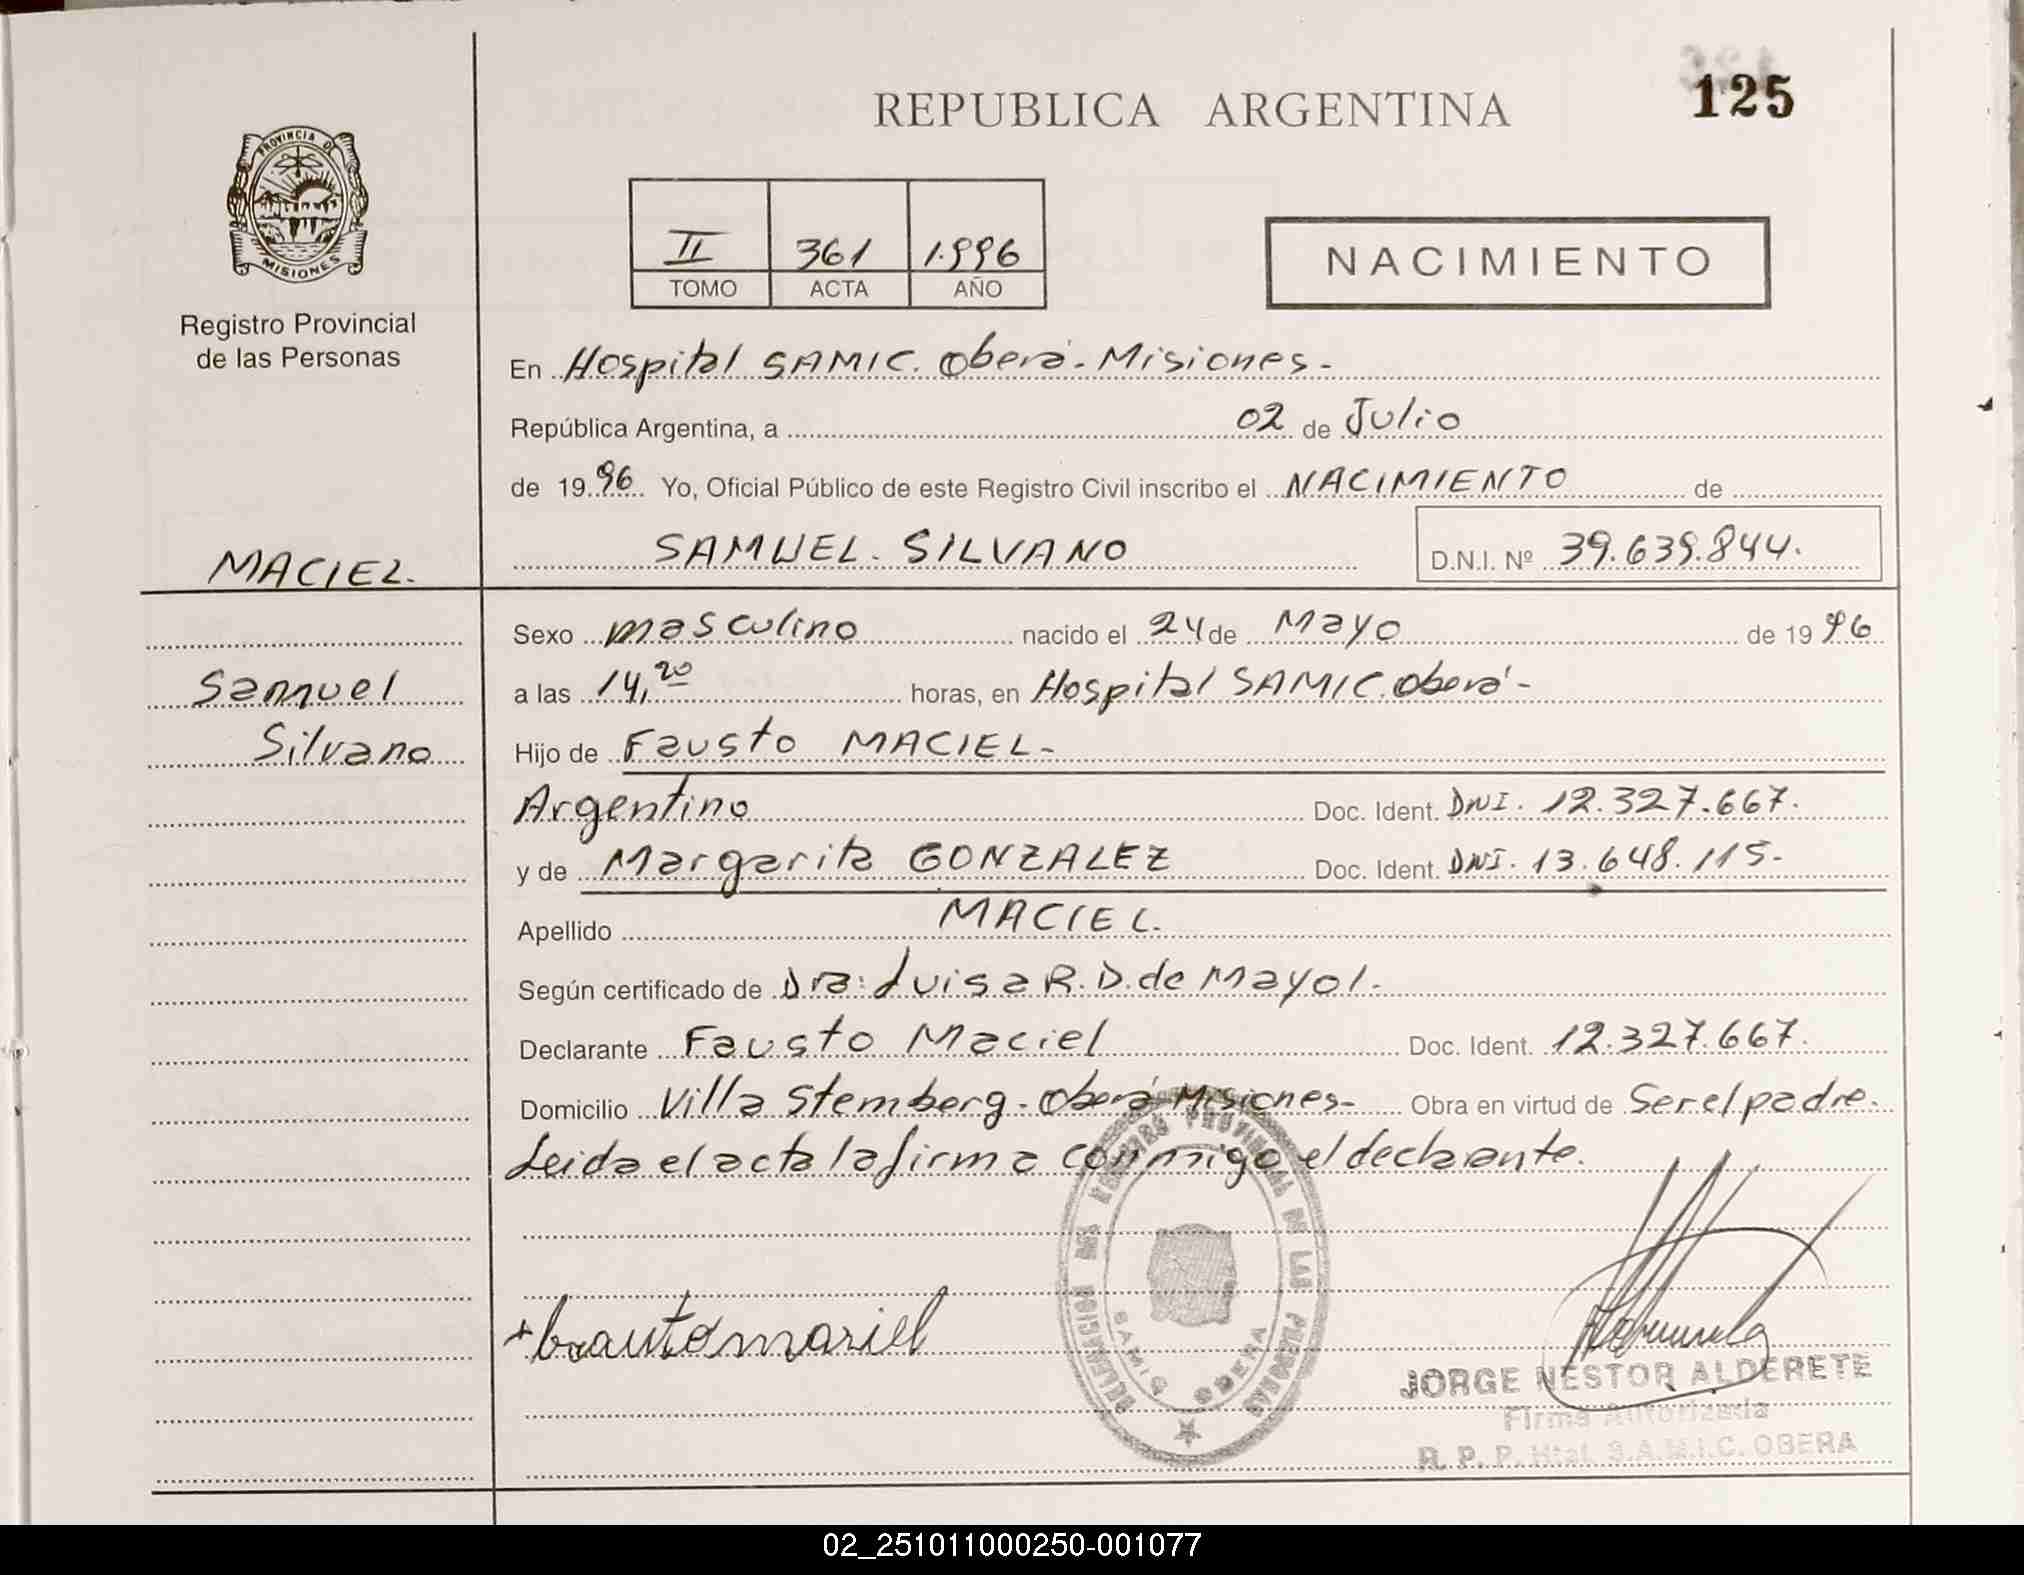 125
REPUBLICA ARGENTINA
PROVINCIA DE
MISIONES
Registro Provincial
de las Personas
II 361 1.996
TOMO ACTA AÑO
NACIMIENTO
En Hospital SAMIC. Oberá - Misiones -
República Argentina, a 02 de Julio
de 1996 Yo, Oficial Público de este Registro Civil inscribo el NACIMIENTO de
SAMUEL SILVANO D.N.I. Nº 39.639.844.
MACIEL.
Samuel
Silvano
Sexo masculino nacido el 24 de Mayo de 1996
a las 14,20 horas, en Hospital SAMIC. Oberá -
Hijo de Fausto MACIEL -
Argentino Doc. Ident. DNI. 12.327.667.
y de Margarita GONZALEZ Doc. Ident. DNI. 13.648.115.
Apellido MACIEL.
Según certificado de Dra: Luisa R. D. de Mayol.
Declarante Fausto Maciel Doc. Ident. 12.327.667.
Domicilio Villa Stemberg - Oberá Misiones - Obra en virtud de Ser el padre.
Leida el acta la firma conmigo el declarante.
DELEGACION DEL REGISTRO PROVINCIAL DE LAS PERSONAS
SAMIC OBERA
JORGE NESTOR ALDERETE
Firma Autorizada
R. P. P. Htal. S.A.M.I.C. OBERA
02_251011000250-001077